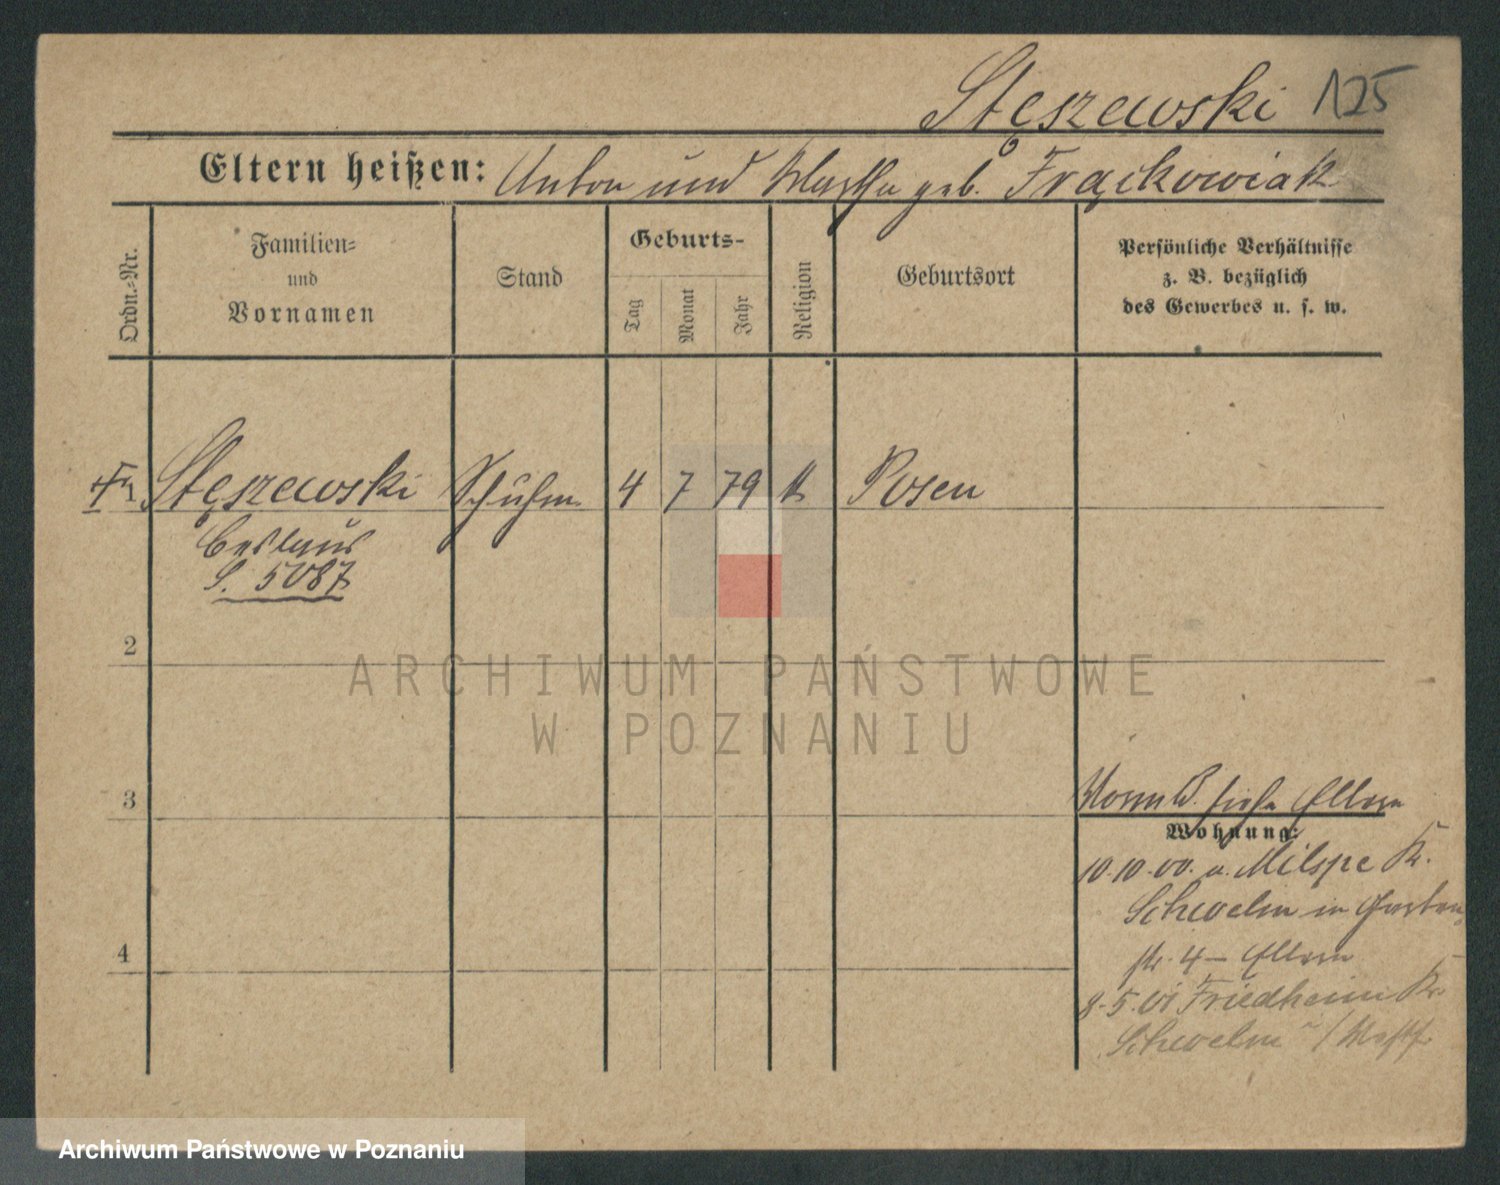 Stęszewski 125
Eltern heißen: Anton und Martha geb. Frąckowiak
Ordn.-Nr.
Familien-
und
Vornamen
Stand
Geburts-
Tag
Monat
Jahr
Religion
Geburtsort
Persönliche Verhältnisse
z. B. bezüglich
des Gewerbes u. s. w.
Stęszewski Schuhm. 4 7 79 k Posen
S. 5087
2
ARCHIWUM PAŃSTWOWE
W POZNANIU
3
siehe Eltern
Wohnung:
10.10.00. n. Milspe Kr.
Schwelm in Garten-
str. 4 – Eltern
8.5.01 Friedheim Kr.
Schwelm / Westf.
4
Archiwum Państwowe w Poznaniu